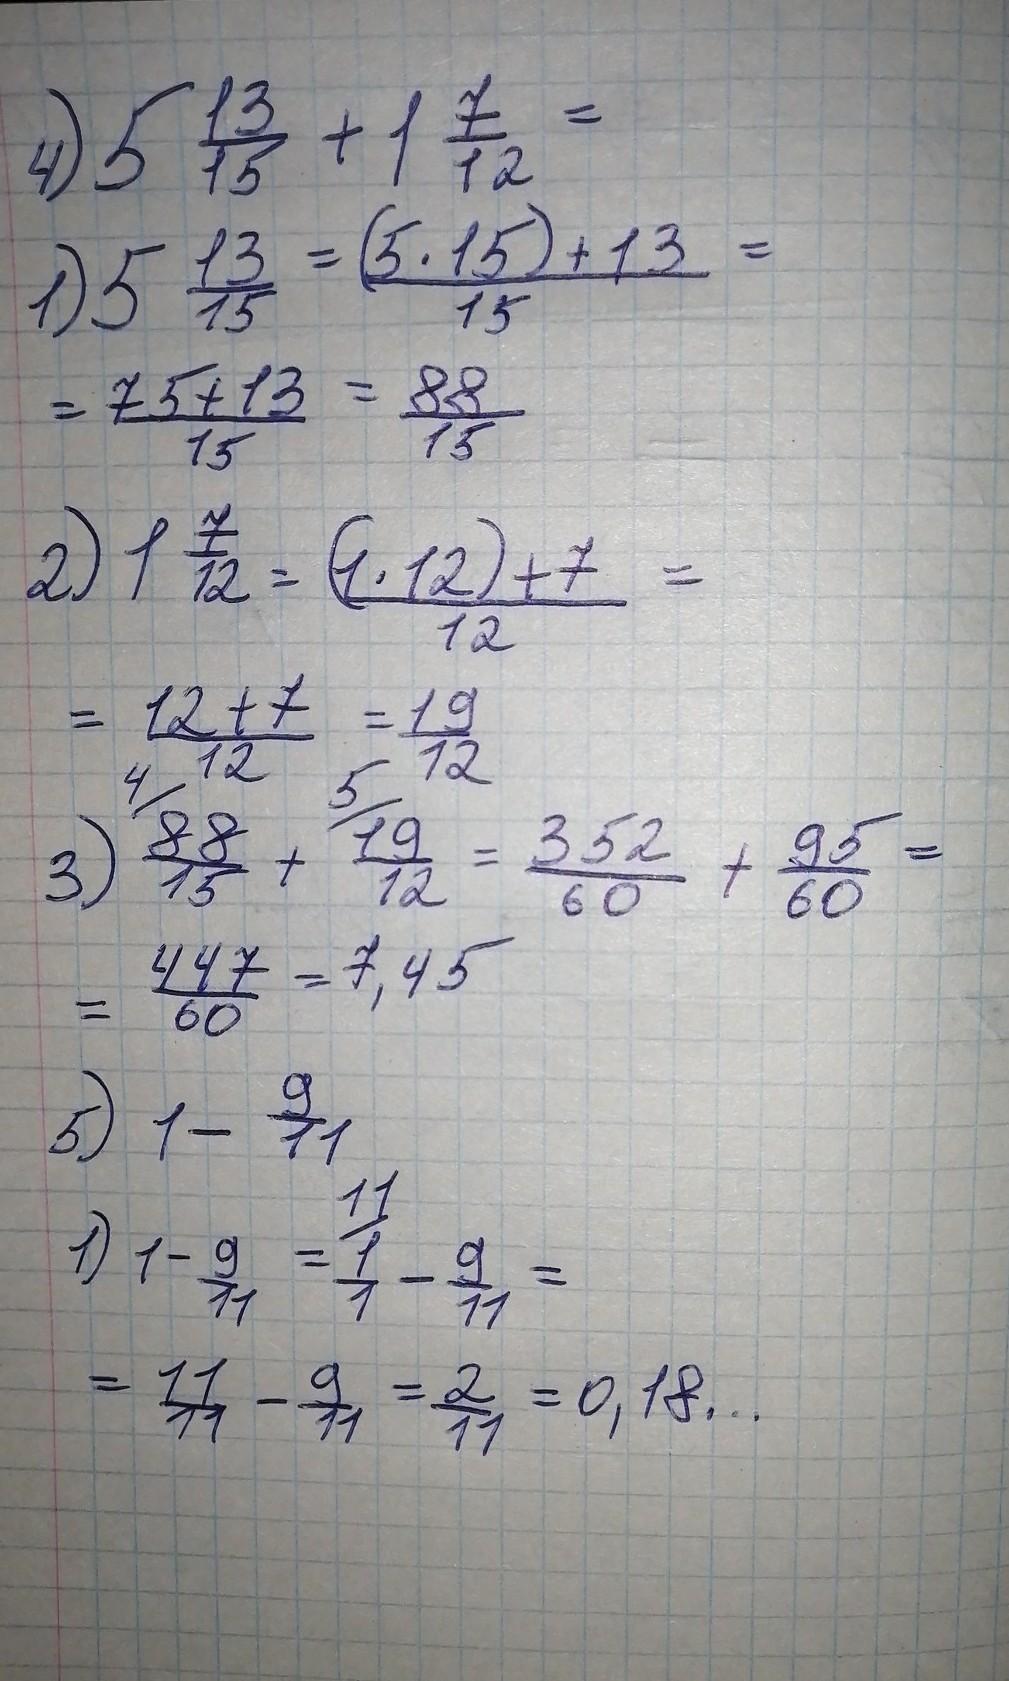 4) 5 13/15 + 1 7/12 =
1) 5 13/15 = (5·15)+13/15 =
= 75+13/15 = 88/15
2) 1 7/12 = (1·12)+7/12 =
= 12+7/12 = 19/12
3) 4/ 88/15 + 5/ 19/12 = 352/60 + 95/60 =
= 447/60 = 7,45
5) 1 - 9/11
1) 1 - 9/11 = 11/ 1/1 - 9/11 =
= 11/11 - 9/11 = 2/11 = 0,18...